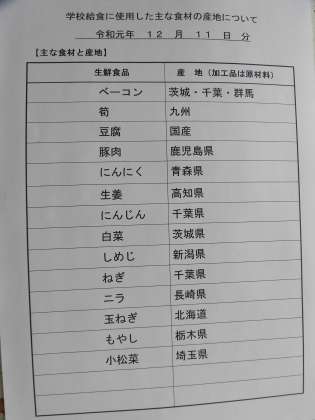 学校給食に使用した主な食材の産地について
令和元年 12 月 11 日 分
【主な食材と産地】
生鮮食品 産 地（加工品は原材料）
ベーコン 茨城・千葉・群馬
筍 九州
豆腐 国産
豚肉 鹿児島県
にんにく 青森県
生姜 高知県
にんじん 千葉県
白菜 茨城県
しめじ 新潟県
ねぎ 千葉県
ニラ 長崎県
玉ねぎ 北海道
もやし 栃木県
小松菜 埼玉県